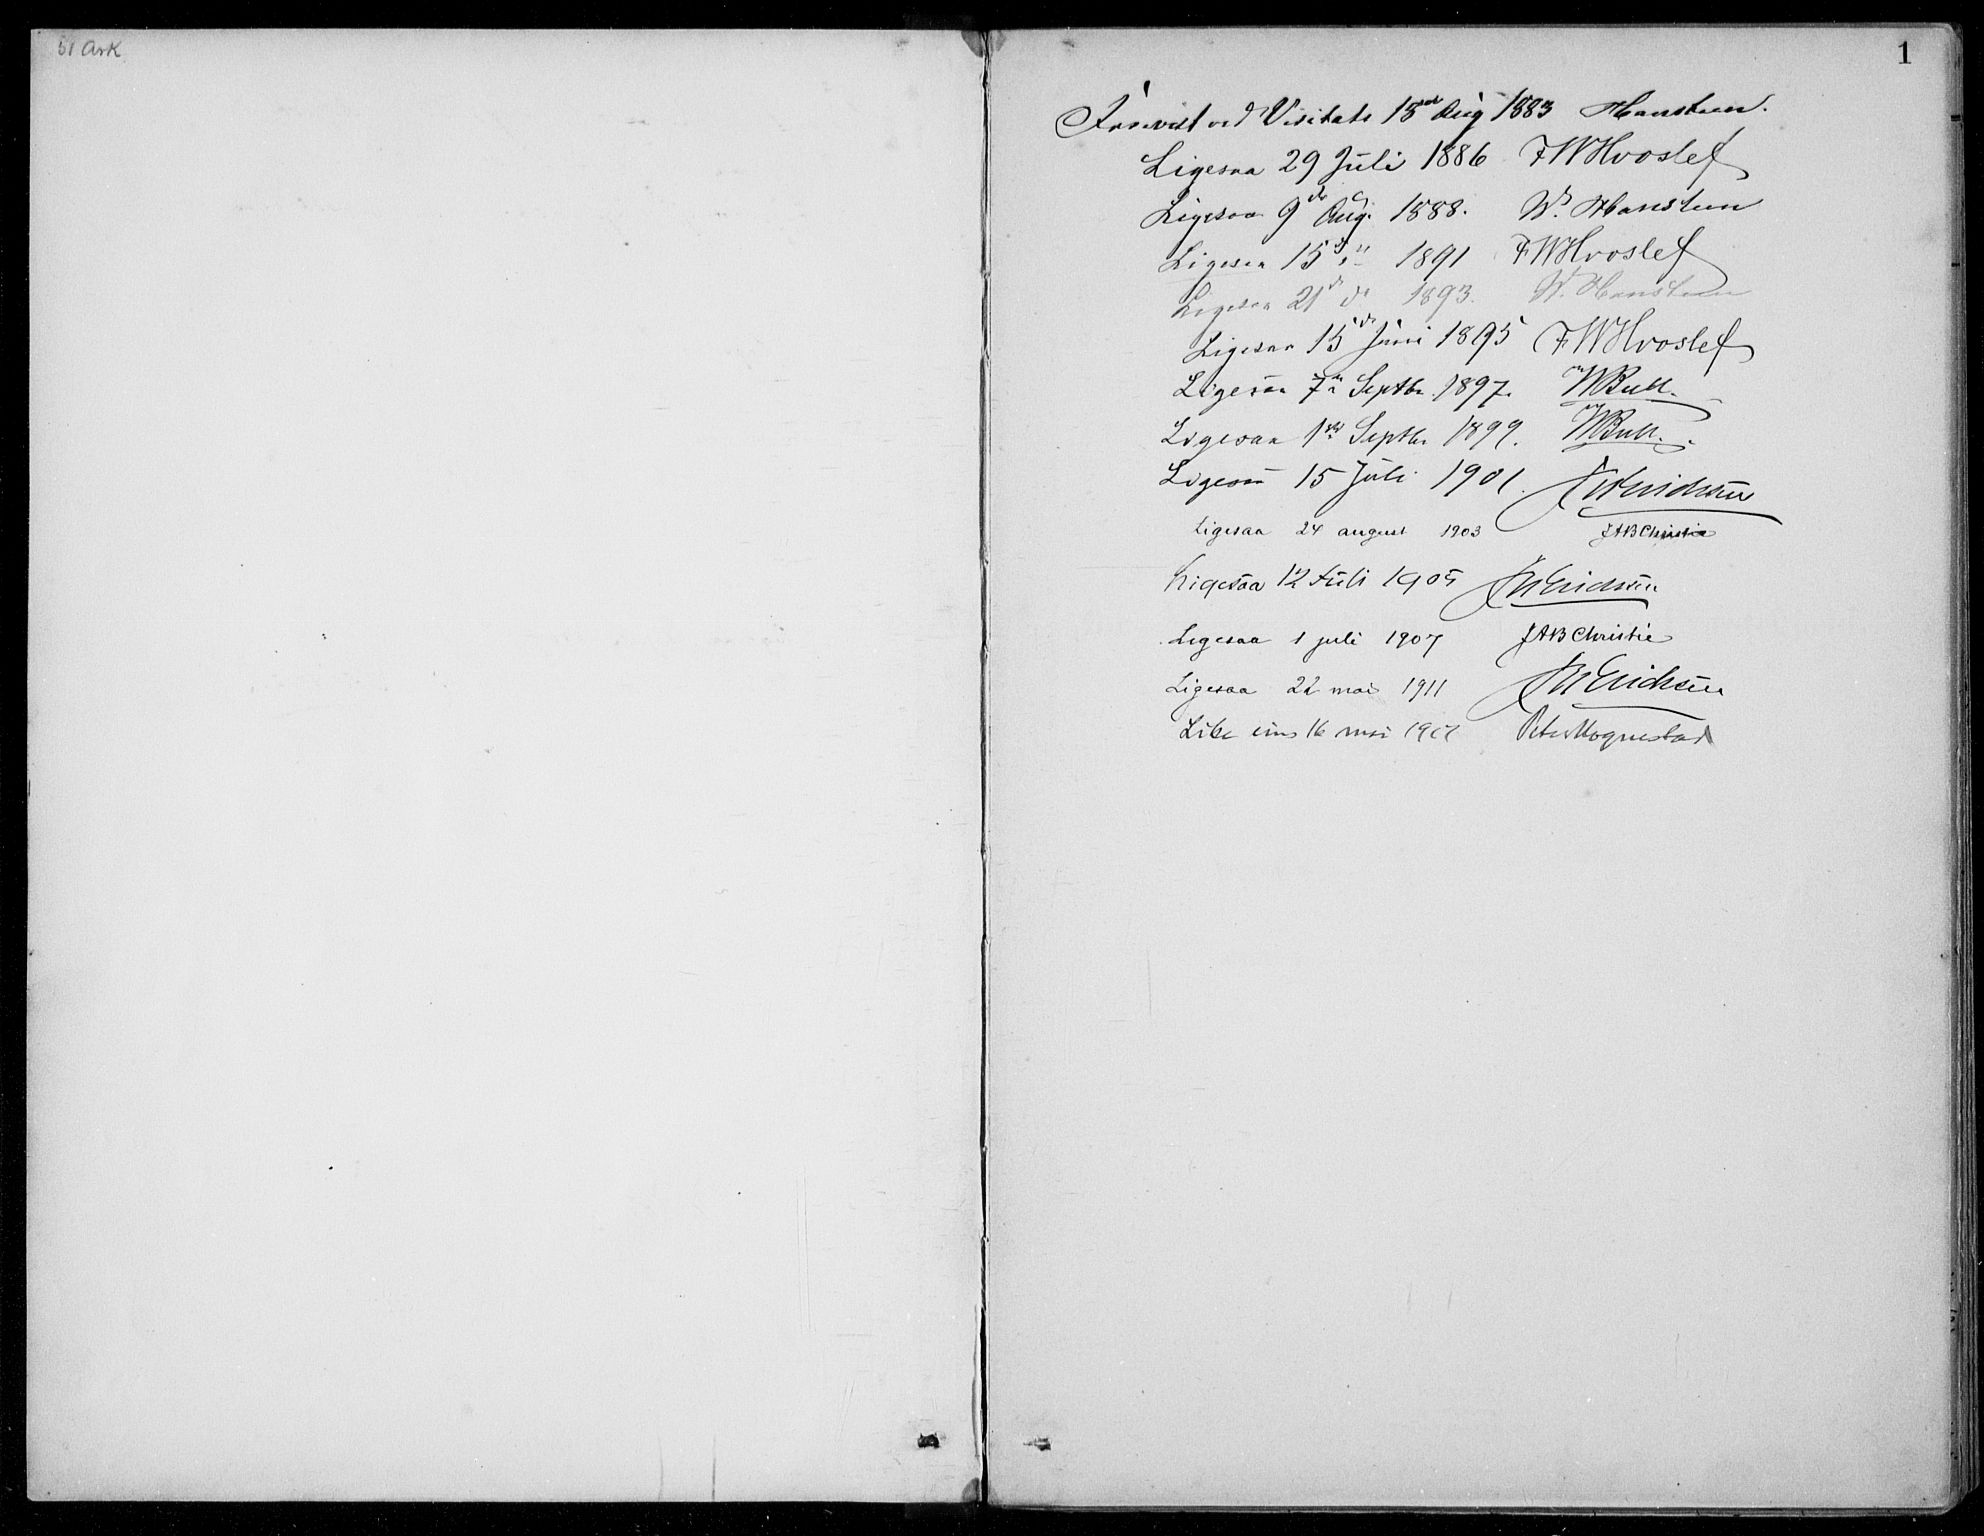 51 Ark
1
Forevist ved Visitats 18 Aug 1883 Hansteen.
Ligesaa 29 Juli 1886 FWHvoslef
Ligesaa 9de Aug. 1888. W. Hansteen
Ligesaa 15 1891 FWHvoslef
Ligesaa 21de do 1893. W. Hansteen
Ligesaa 15de Juni 1895 FWHvoslef
Ligesaa 7de Septbr. 1897. Bull.
Ligesaa 1ste Septbr 1899. Bull.
Ligesaa 15 Juli 1901. Erichsen
Ligesaa 24 august 1903 JABChristie
Ligesaa 12 Juli 1905 Erichsen
Ligesaa 1 juli 1907 JABChristie
Ligesaa 22 mai 1911 Erichsen
Like eins 16 mai Peter Hognestad